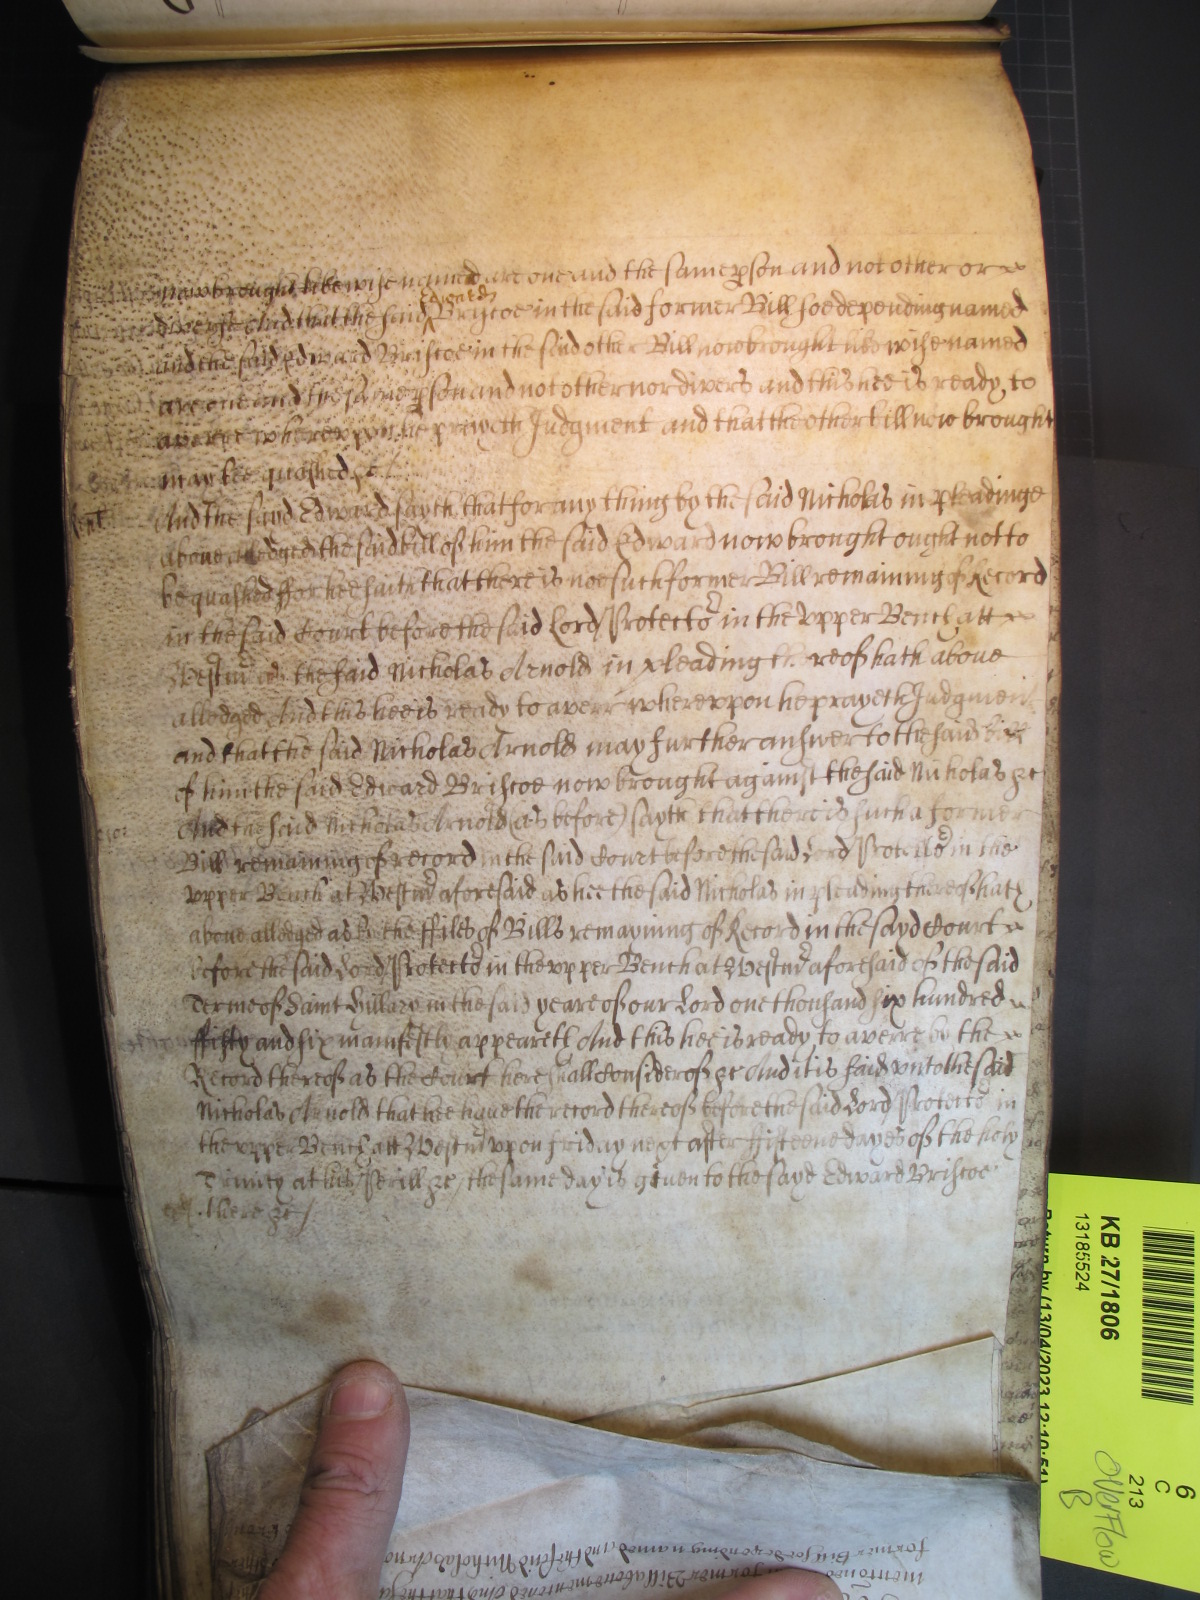 nowbrought likewise named are one and the same pson and not other or
diverse And that the said Edward Briscoe in the said former Bill soe depending named
and the said Edward Briscoe in the said other Bill now brought likewise named
are one and the same pson and not other nor divers and this hee is ready to
averre wherevpon he prayeth Judgment and that the other bill now brought
may bee quashed &c
Repl
And the sayd Edward sayth that for any thing by the said Nicholas in pleadinge
above alledged the said bill of him the said Edward now brought ought not to
be quashed ffor hee saith that there is noe such former Bill remaining of Record
in the said Court before the said Lord Protector in the vpper Bench att
Westmr as the said Nicholas Arnold in pleading reof hath above
alledged And this hee is ready to averr wherevpon he prayeth Judgment
and that the said Nicholas Arnold may further answer to the said bill
of him the said Edward Briscoe now brought against the said Nicholas &c
And the said Nicholas Arnold (as before) sayth that there is such a former
Bill remaining of record in the said Court before the said Lord Protector in the
vpper Bench at Westmr aforesaid as hee the said Nicholas in pleading thereof hath
above alledged as by the ffiles of Bills remayning of Record in the sayd Court
before the said Lord Protector in the vpper Bench at Westmr aforesaid of the said
Terme of Saint Hillary in the said yeare of our Lord one thousand six hundred
ffifty and six manifestly appeareth And this hee is ready to averre by the
Record thereof as the Court here shall Consider of &c And it is said vnto the said
Nicholas Arnold that hee have the record thereof before the said Lord Protector in
the vpper Bench att Westmr vpon Friday next after ffifteene dayes of the holy
Trinity at his Perill &c the same day is given to the sayd Edward Briscoe
there &c
KB 27/1806
13185524
Return by (13/04/2023 12:10:51)
6
C
213
Overflow
B
former Bill soe depending named and the said Nicholas Arno